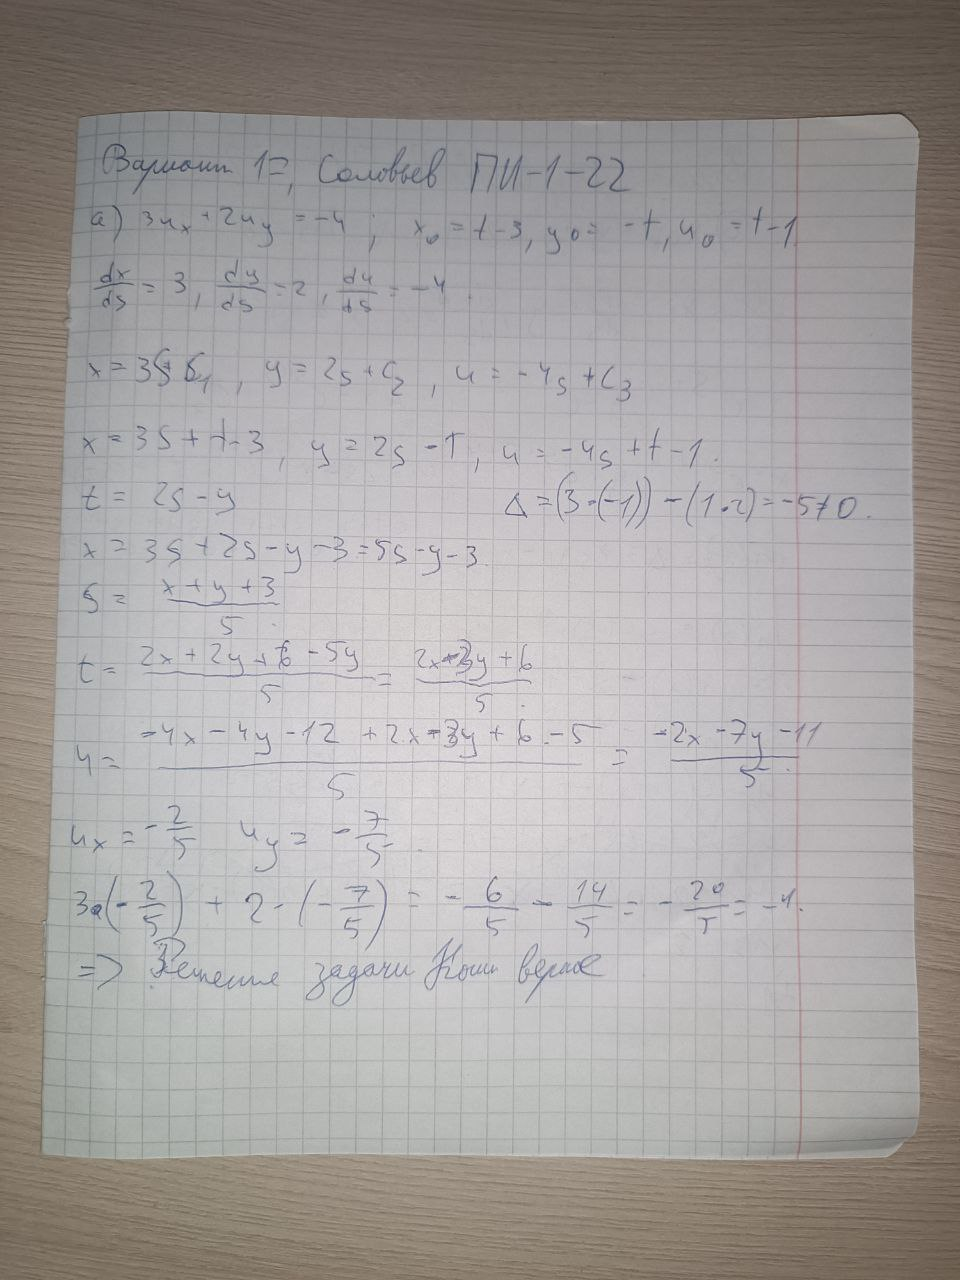 Вариант 17, Соловьев ПИ-1-22
а) 3u_x + 2u_y = -4 ; x_0 = t-3, y_0 = -t, u_0 = t-1
dx/ds = 3, dy/ds = 2, du/ds = -4.
x = 3s + C_1, y = 2s + C_2, u = -4s + C_3
x = 3s + t - 3, y = 2s - t, u = -4s + t - 1.
t = 2s - y Δ = (3·(-1)) - (1·2) = -5 ≠ 0.
x = 3s + 2s - y - 3 = 5s - y - 3.
s = (x + y + 3)/5.
t = (2x + 2y + 6 - 5y)/5 = (2x - 3y + 6)/5.
u = (-4x - 4y - 12 + 2x - 3y + 6 - 5)/5 = (-2x - 7y - 11)/5.
u_x = -2/5 u_y = -7/5.
3·(-2/5) + 2·(-7/5) = -6/5 - 14/5 = -20/5 = -4.
=> Решение задачи Коши верное